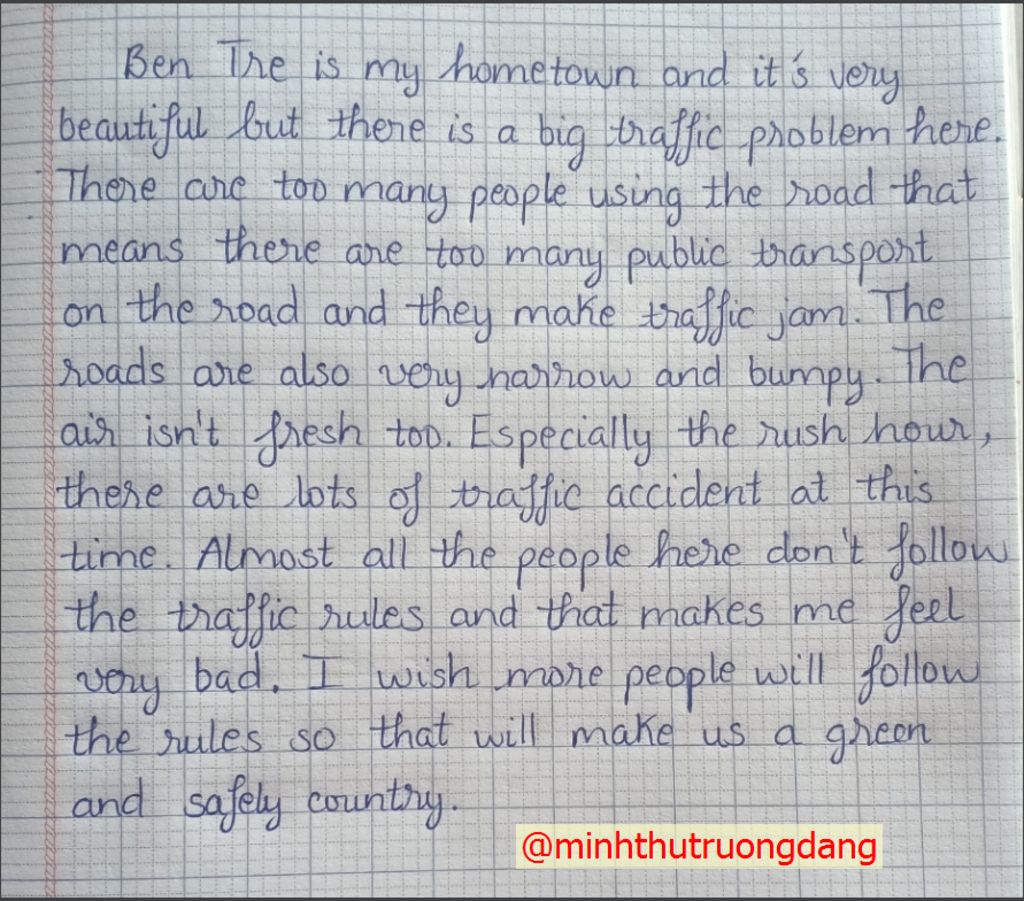 Ben Tre is my hometown and it's very
beautiful but there is a big traffic problem here.
There are too many people using the road that
means there are too many public transport
on the road and they make traffic jam. The
roads are also very narrow and bumpy. The
air isn't fresh too. Especially the rush hour,
there are lots of traffic accident at this
time. Almost all the people here don't follow
the traffic rules and that makes me feel
very bad. I wish more people will follow
the rules so that will make us a green
and safely country.
@minhthutruongdang